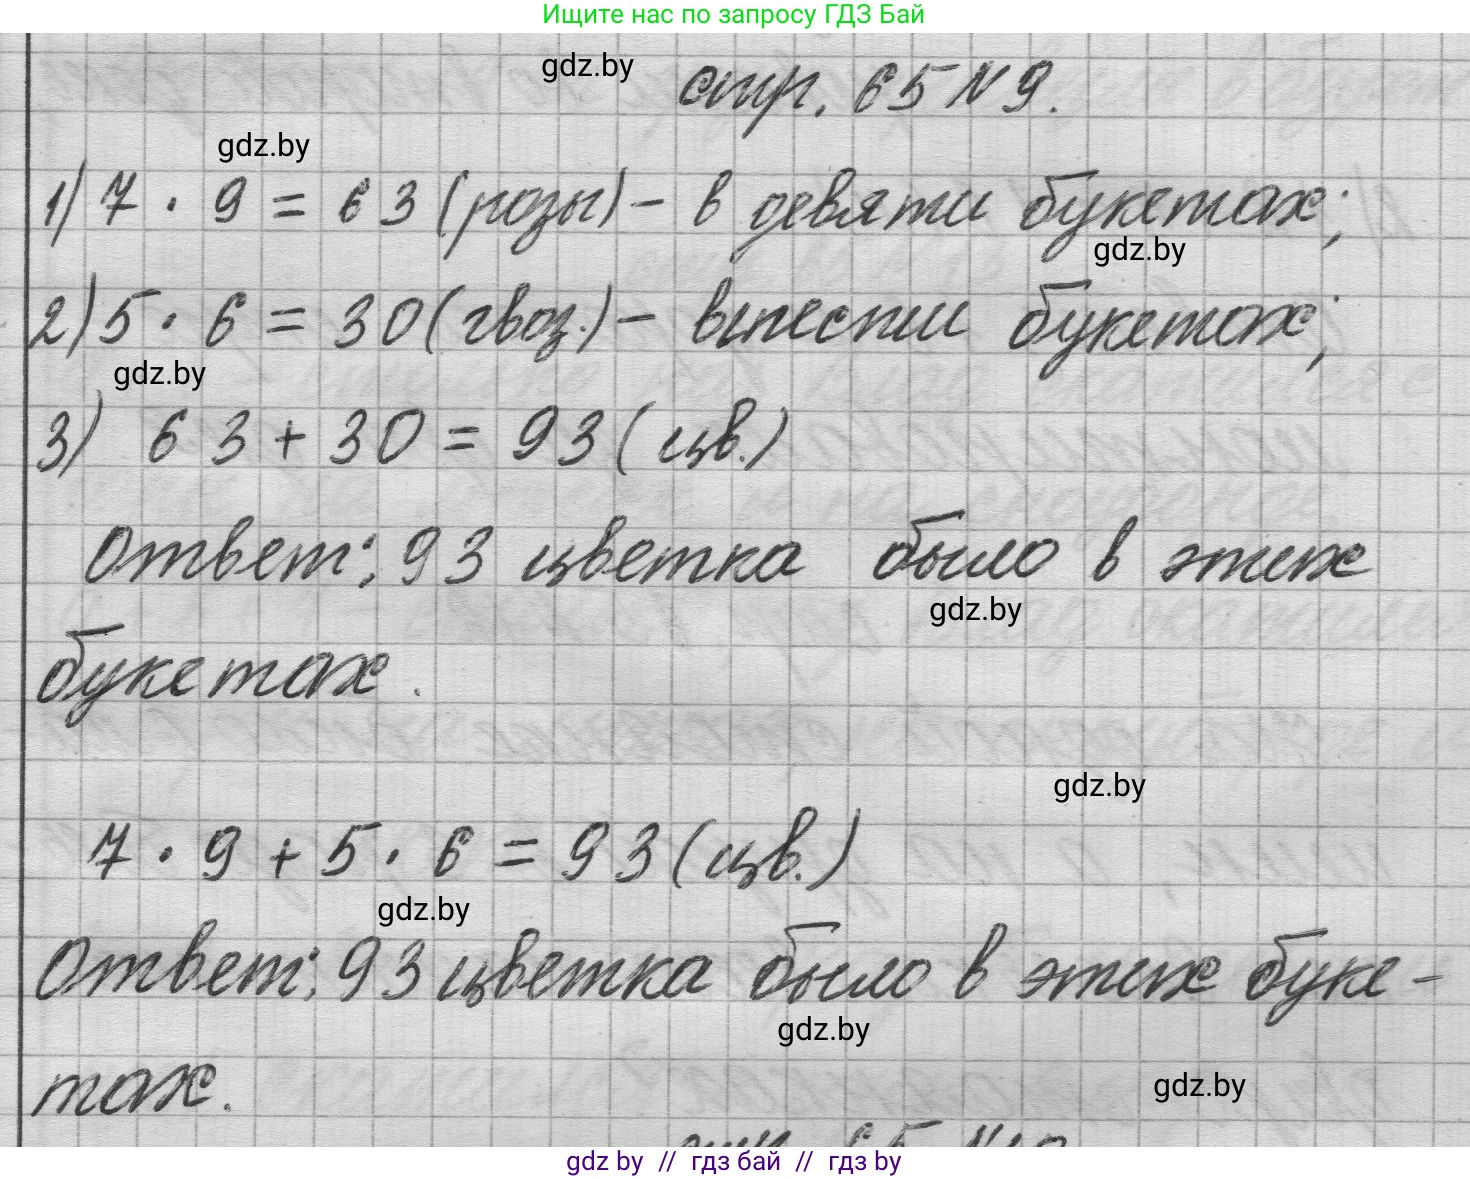 Ищите нас по запросу ГДЗ Бай
gdz.by
стр. 65 N 9.
gdz.by
1) 7 · 9 = 63 (розы) – в девяти букетах;
gdz.by
2) 5 · 6 = 30 (гвоз.) – в шести букетах;
gdz.by
3) 63 + 30 = 93 (цв.)
Ответ: 93 цветка было в этих
gdz.by
букетах.
gdz.by
7 · 9 + 5 · 6 = 93 (цв.)
gdz.by
Ответ: 93 цветка было в этих буке-
gdz.by
тах.
gdz.by
gdz by // гдз бай // гдз by